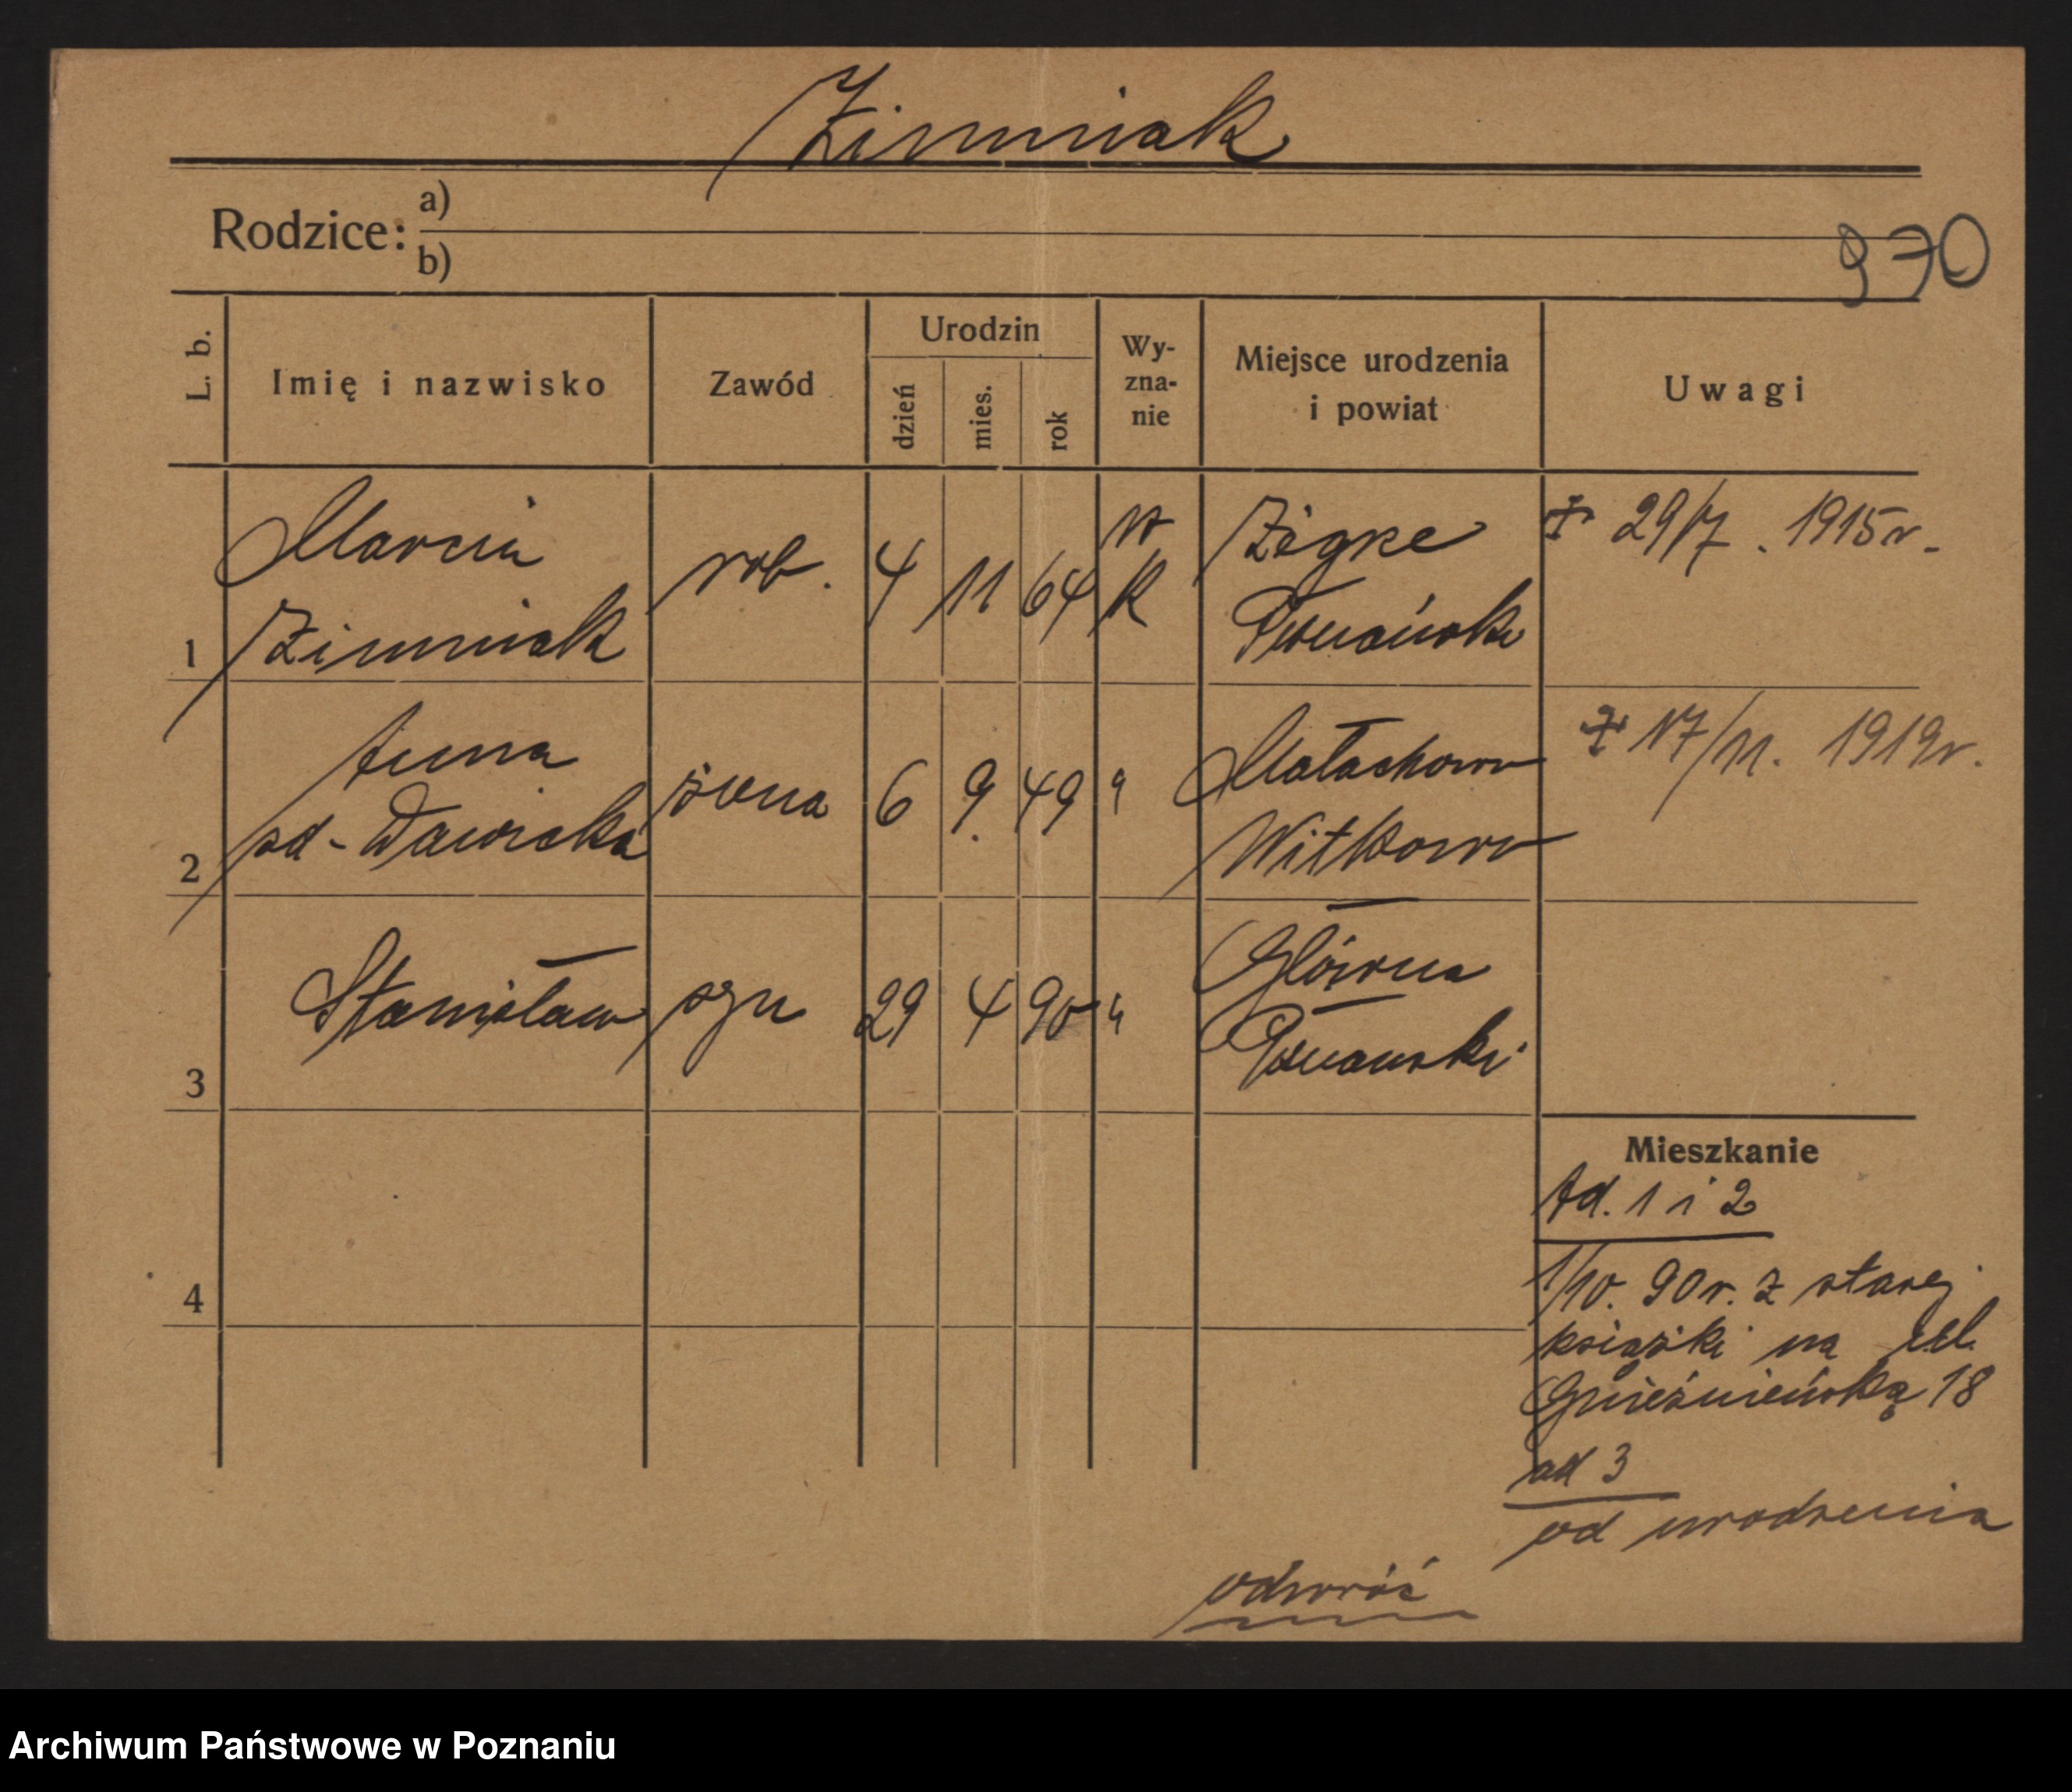 Zimniak
Rodzice: a)
b)
970
L. b. Imię i nazwisko Zawód Urodzin dzień mies. rok Wy-zna-nie Miejsce urodzenia i powiat Uwagi
1 Marcin Zimniak rob. 4 11 64 rz K Poznański + 29/7. 1915 r.
2 Anna od-Dawicka żona 6 9. 49 " Małachowo Witkowo + 17/11. 1919 r.
3 Stanisław syn 29 4 90 " Główna Poznański
4
Mieszkanie
Ad. 1 i 2
1/10. 90 r. z starej
książki na ul.
Gnieźnieńską 18
ad 3
od urodzenia
odwróć
Archiwum Państwowe w Poznaniu